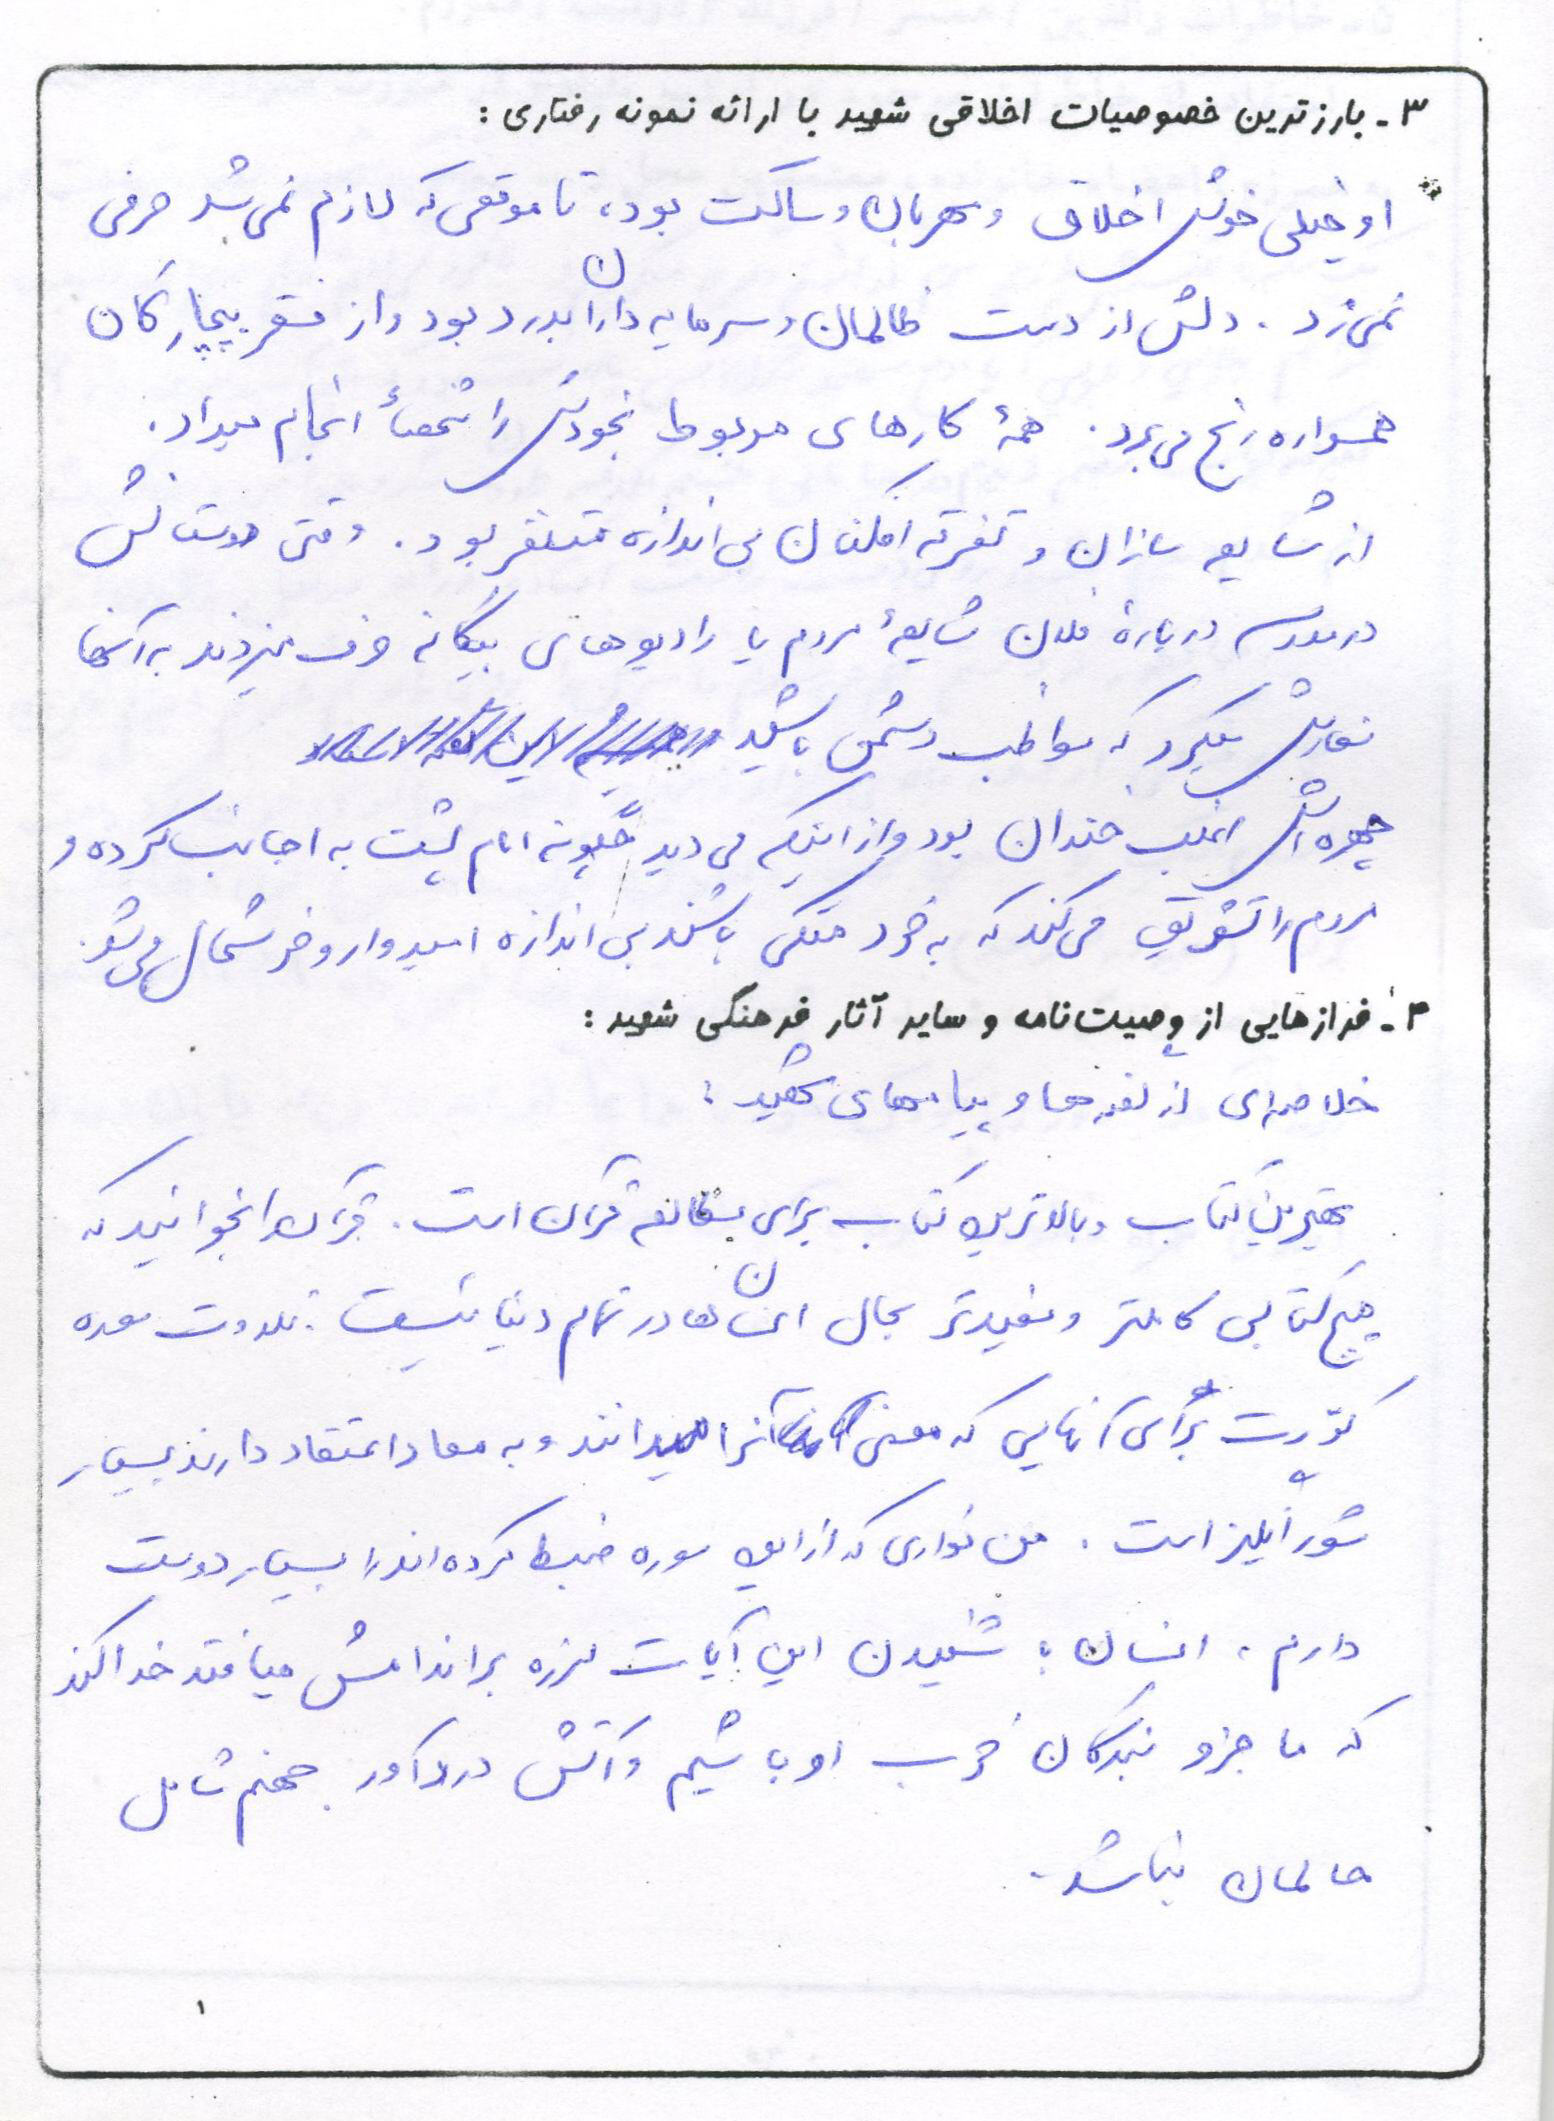 ۳ـ بارزترین خصوصیات اخلاقی شهید با ارائه نمونه رفتاری :
او خیلی خوش اخلاق و مهربان و ساکت بود، تا موقعی که لازم نمی شد حرفی
نمی زد . دلش از دست ظالمان و سرمایه داران بدرد بود و از فقر بیچارگان
همواره رنج می برد . همهٔ کارهای مربوط بخودش را شخصاً انجام میداد .
از شایعه سازان و تفرقه افکنان بی اندازه متنفر بود . وقتی دوستانش
در مدرسه دربارهٔ فلان شایعهٔ مردم یا رادیوهای بیگانه حرف میزدند به آنها
سفارش میکرد که مواظب دشمن باشید
چهره اش اغلب خندان بود و از اینکه می دید چگونه امام پشت به اجانب کرده و
مردم را تشویق می کند که به خود متکی باشند بی اندازه امیدوار و خوشحال می شد .
۴ـ فرازهایی از وصیت نامه و سایر آثار فرهنگی شهید :
خلاصه ای از گفته ها و پیامهای شهید :
بهترین کتاب و بالاترین کتاب برای مطالعه قرآن است . قرآن را بخوانید که
هیچ کتابی کاملتر و مفیدتر بحال انسان ها در تمام دنیا نیست . تلاوت سوره
کوّرت برای آنهایی که معنی آنرا میدانند و به معاد اعتقاد دارند بسیار
شورانگیز است . من نواری که از این سوره ضبط کرده اند را بسیار دوست
دارم ، انسان با شنیدن این آیات لرزه بر اندامش میافتد خدا کند
که ما جزو بندگان خوب او باشیم و آتش دردآور جهنم شامل
حالمان نباشد .
۱